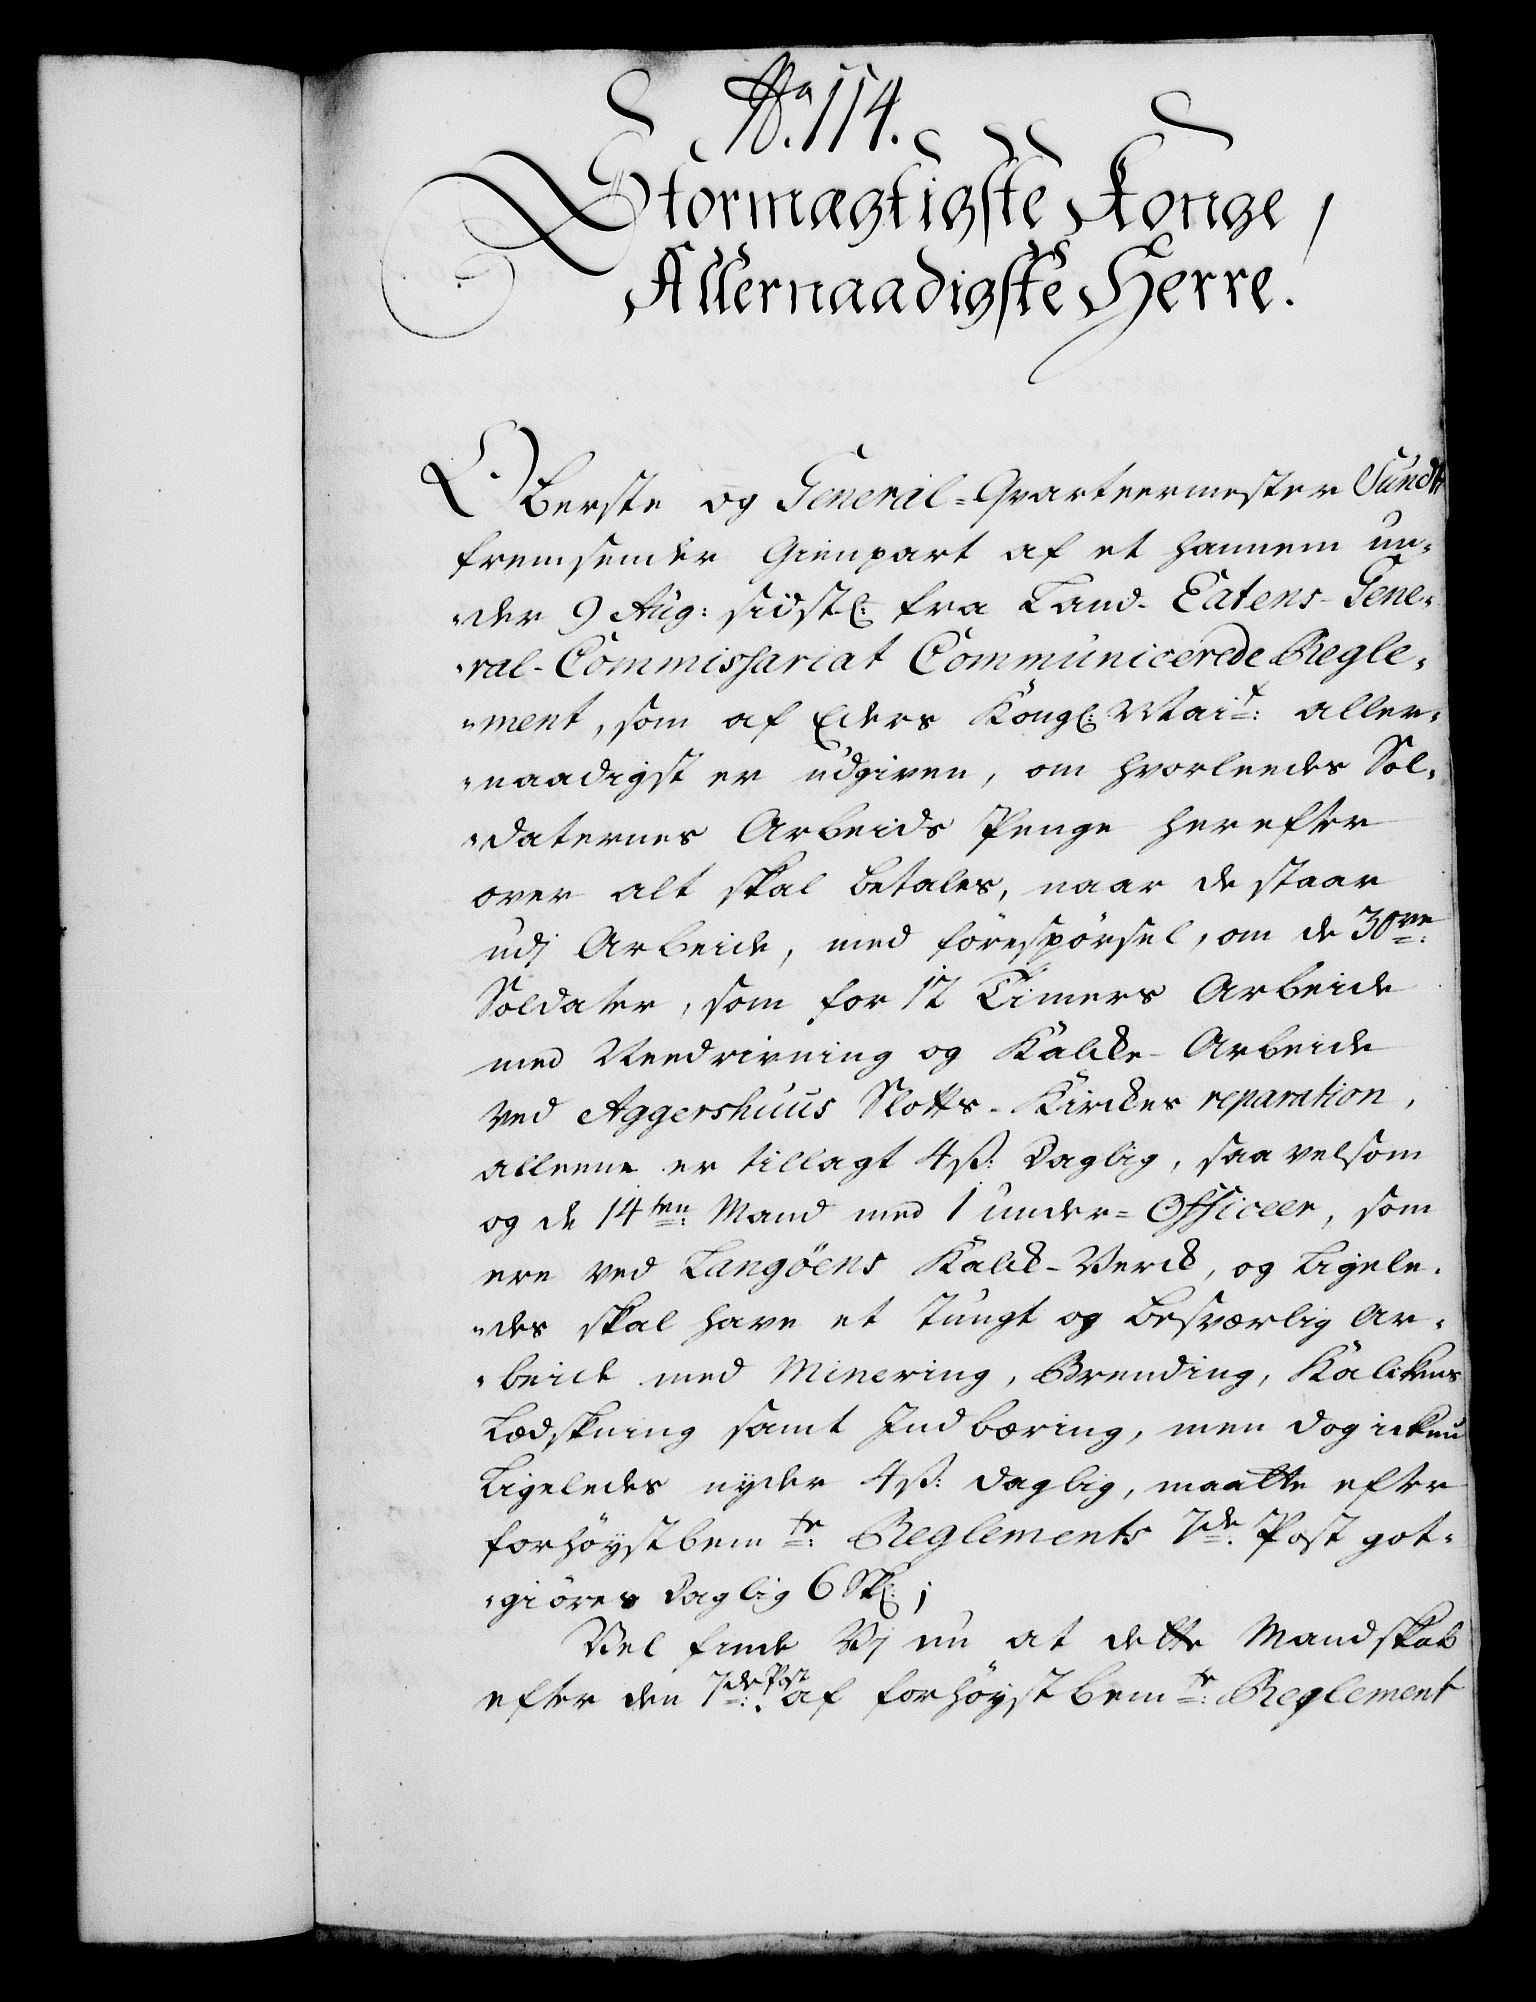 No. 114.
Stormægtigste Konge,
Allernaadigste Herre.
Oberste og General-Qvarteermester Sundt
fremsender Gienpart af et hannem un-
-der 9 Aug: sidstl: fra Land-Eatens-Gene-
-ral-Commissariat Communicerede Regle-
-ment, som af Eders Kongl: Mait: aller-
-naadigst er udgiven, om hvorleedes Sol-
-daternes Arbeids Penge herefter
over alt skal betales, naar de staar
udj Arbeide, med förespörsel, om de 30ve:
Soldater, som for 12 Timers Arbeide
med Needrivning og Kalcke-Arbeide
ved Aggershuus Slotts-Kirckes reparation,
alleene er tillagt 4 ß: Daglig, saavelsom
og de 14ten: Mand med 1 under=Officeer, som
ere ved Langöens Kalck-Verck, og Ligele-
-des skal have et Tungt og besværlig Ar-
-beide med Minering, Brending, Kalckens
Lædskning samt Indbæring, men dog ickun
Ligeledes nyder 4 ß: daglig, maatte efter
forhöystbemte: Reglements 7de: Post got-
-giöres Daglig 6 Sk: ;
Vel finde Vj nu at dette Mandskab
efter den 7de: Post af forhöystbemte: Reglement